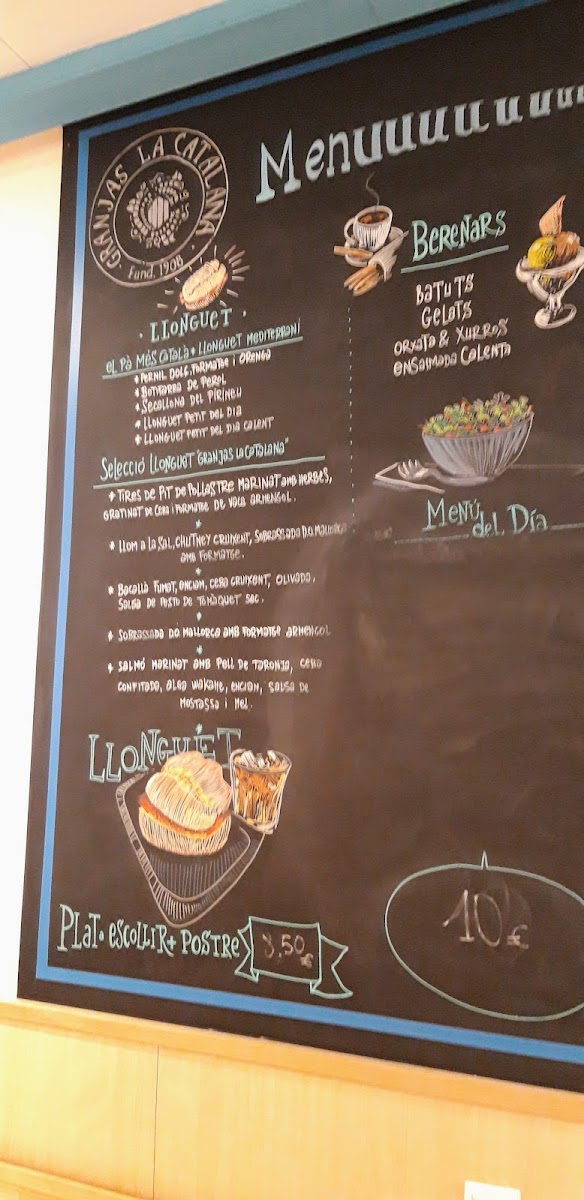 GRANJAS LA CATALANA
Fund. 1908
Menuuuuuuuu
LLONGUET
el PÀ MÉS CATALÀ • LLONGUET MEDITERRANI
PERNIL DOLÇ, FORMATGE i ORENGA
BOTIFARRA DE PEROL
SECALLONA DEL PIRINEU
LLONGUET PETIT DEL DIA
LLONGUET PETIT DEL DIA CALENT
Selecció LLONGUET "GRANJAS LA CATALANA"
TIRES DE PIT DE POLLASTRE MARINAT AMB HERBES,
GRATINAT DE CEBA i FORMATGE DE VACA ARMENGOL.
LLOM A LA SAL, CHUTNEY CRUIXENT, SOBRASSADA D.O. MALLORCA
AMB FORMATGE.
BACALLÀ FUMAT, ENCIAM, CEBA CRUIXENT, OLIVADA,
SALSA DE PESTO DE TOMÀQUET SEC.
SOBRASSADA D.O MALLORCA AMB FORMATGE ARMENGOL
SALMÓ MARINAT AMB PELL DE TARONJA, CEBA
CONFITADA, ALGA WAKAME, ENCIAM, SALSA DE
MOSTASSA i MEL.
LLONGUET
PLAT • ESCOLLIR + POSTRE
8,50 €
BERENARS
BATUTS
GELATS
ORXATA & XURROS
ENSAIMADA CALENTA
MENÚ
del Día
10 €